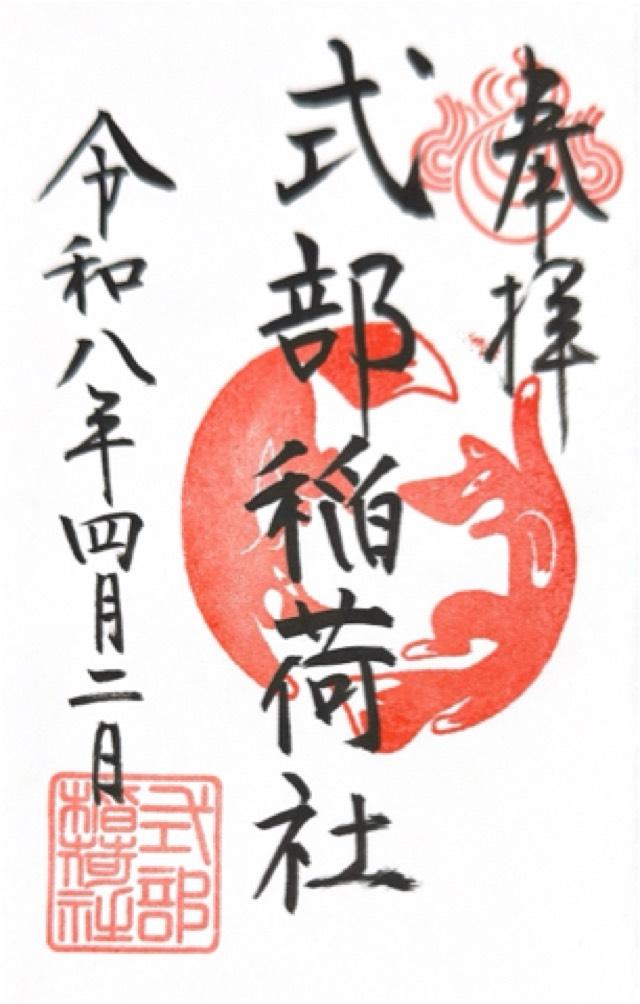 奉拝
式部稲荷社
令和八年四月二日
式部
稲荷社